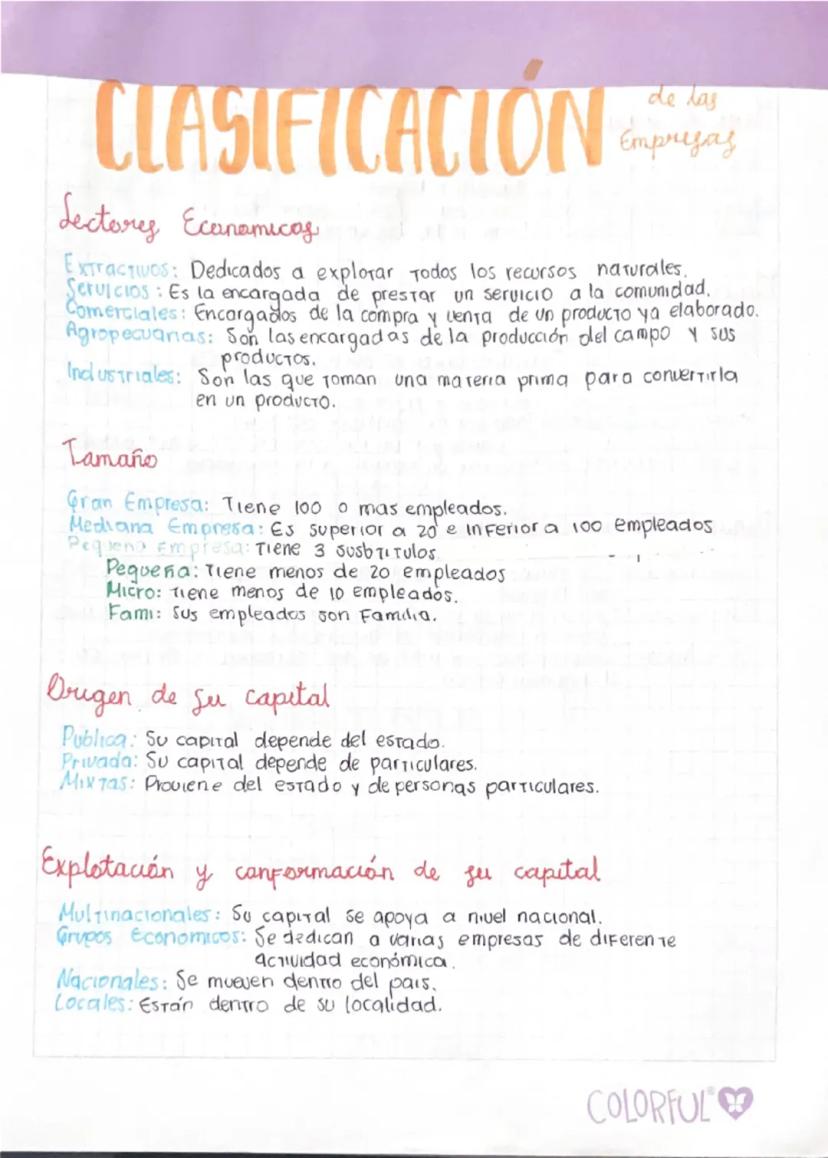 CLASIFICACIÓN de las
Empresas
Sectores Economicos
Extractivos: Dedicados a explotar todos los recursos naturales.
Servicios: Es la encargada de prestar un servicio a la comunidad.
Comerciales: Encargados de la compra y venta de un producto ya elaborado.
Agropecuarias: Son las encargadas de la producción del campo y sus
productos.
Industriales: Son las que toman una materia prima para convertirla
en un producto.
Tamaño
Gran Empresa: Tiene 100 o mas empleados.
Mediana Empresa: Es superior a 20 e inferior a 100 empleados
Pequeña Empresa: Tiene 3 susbtitulos
Pequeña: Tiene menos de 20 empleados
Micro: tiene menos de 10 empleados.
Fami: Sus empleados son Familia.
Origen de su capital
Publica: Su capital depende del estado.
Privada: Su capital depende de particulares.
Mixtas: Proviene del estado y de personas particulares.
Explotación y conformación de su capital
Multinacionales: Su capital se apoya a nivel nacional.
Grupos Economicos: Se dedican a varias empresas de diferente
actividad económica.
Nacionales: Se mueven dentro del pais.
Locales: Están dentro de su localidad.
COLORFUL